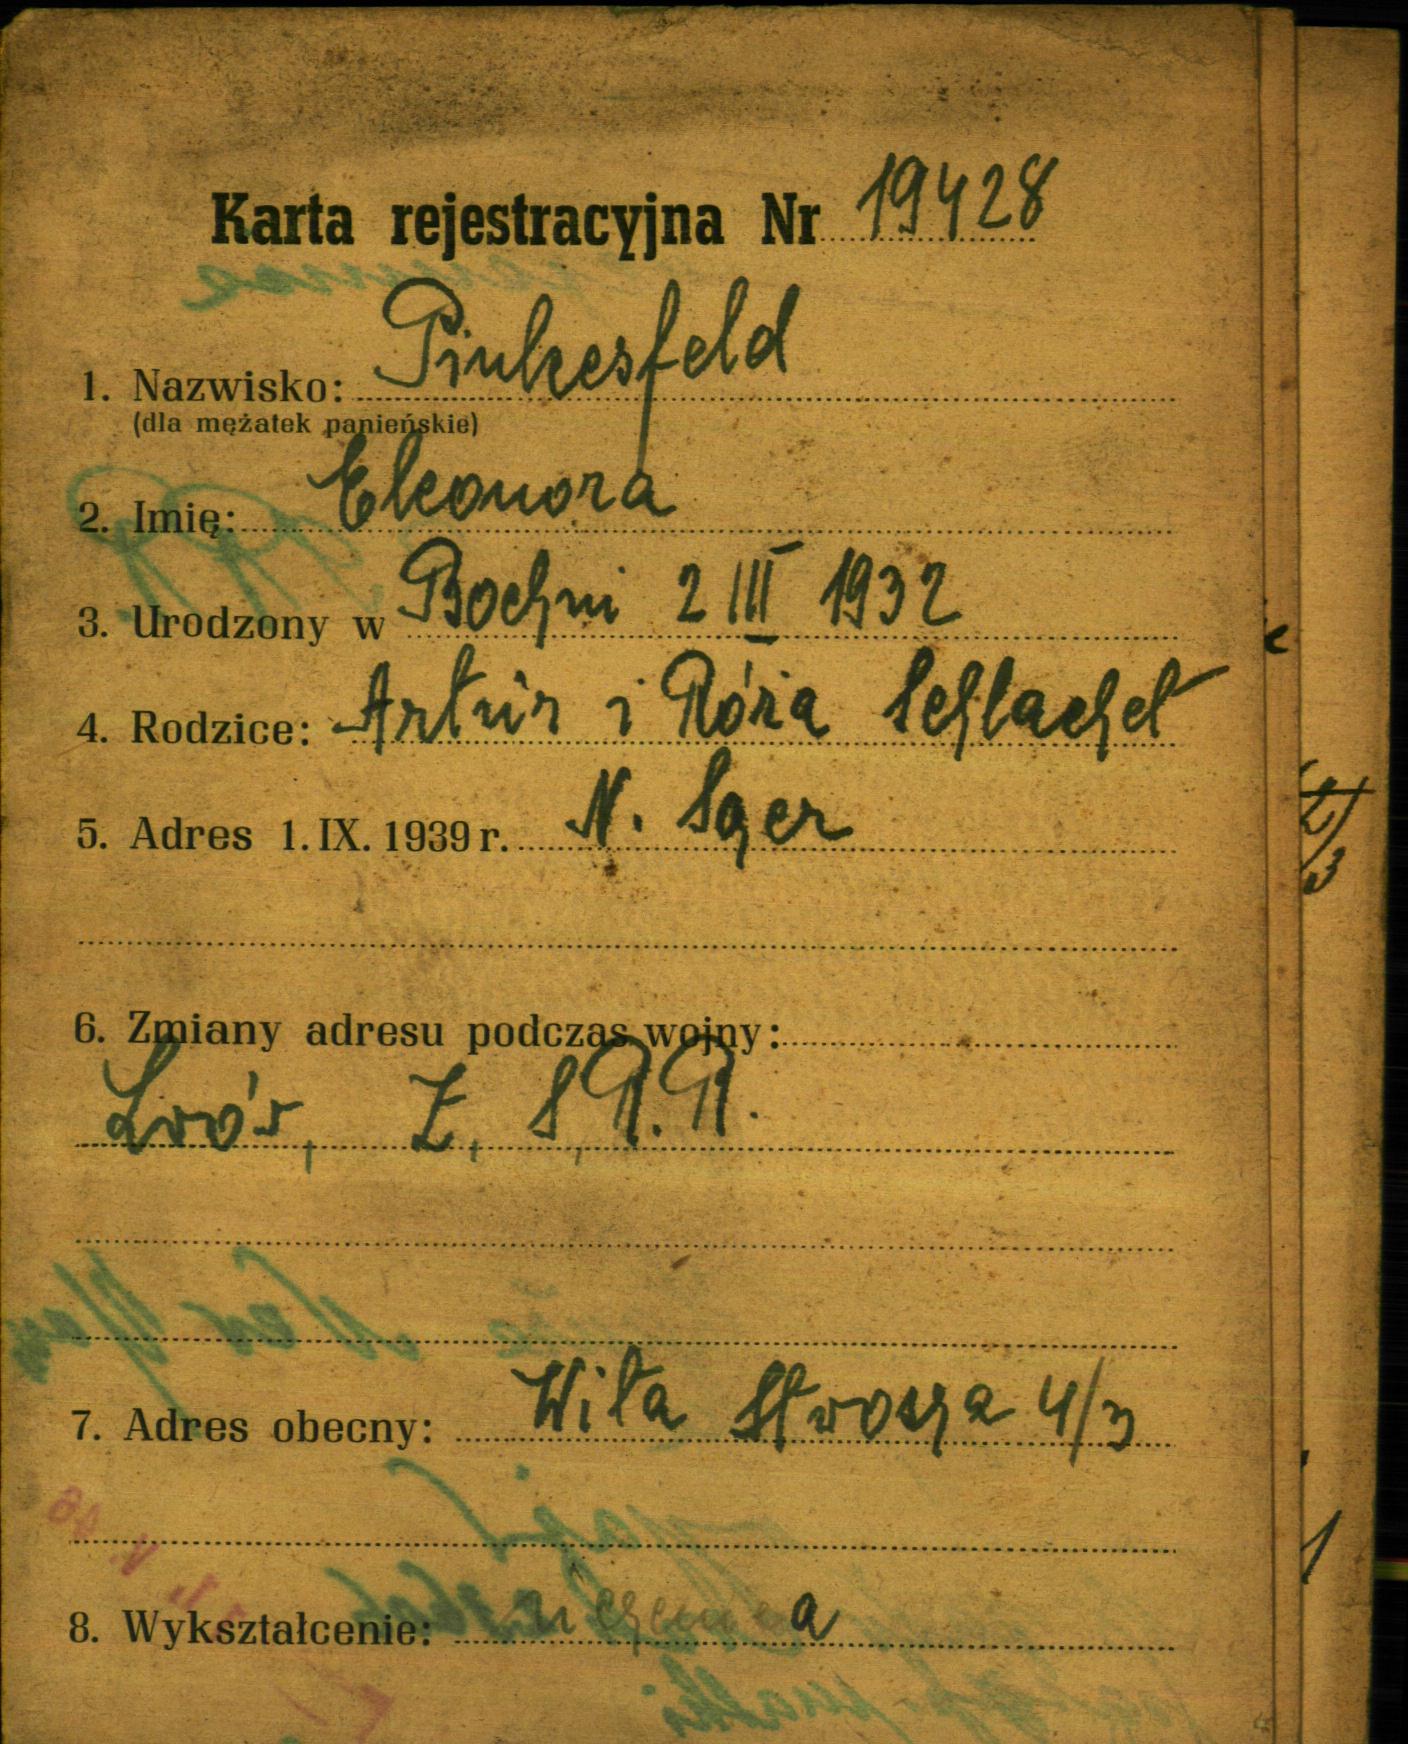 Karta rejestracyjna Nr 19428
1. Nazwisko: Pinkesfeld
(dla mężatek panieńskie)
2. Imię: Eleonora
3. Urodzony w Bochni 2 III 1932
4. Rodzice: Artur i Róża Schlachet
5. Adres 1. IX. 1939 r. N. Sącz
6. Zmiany adresu podczas wojny:
Lwów, Z, S.R.R.
7. Adres obecny: Wita Stwosza 4/3
8. Wykształcenie: uczennica